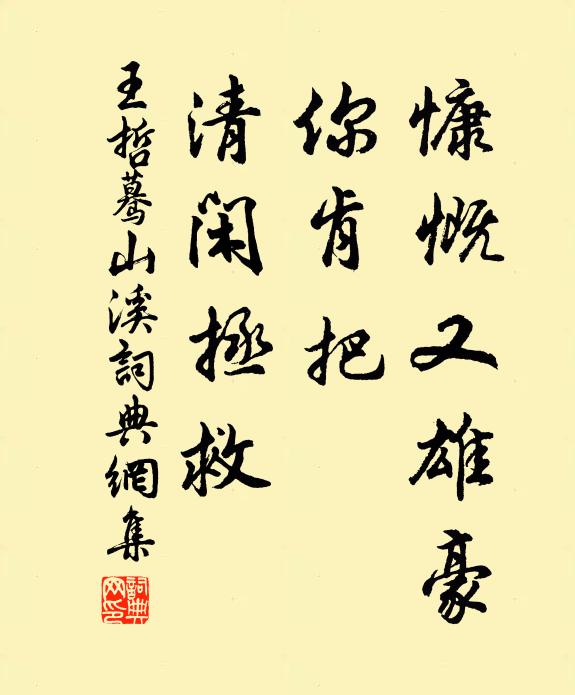 慷慨又雄豪
你肯把
清閑拯救
王哲驀山溪詞典網集
詞典网印